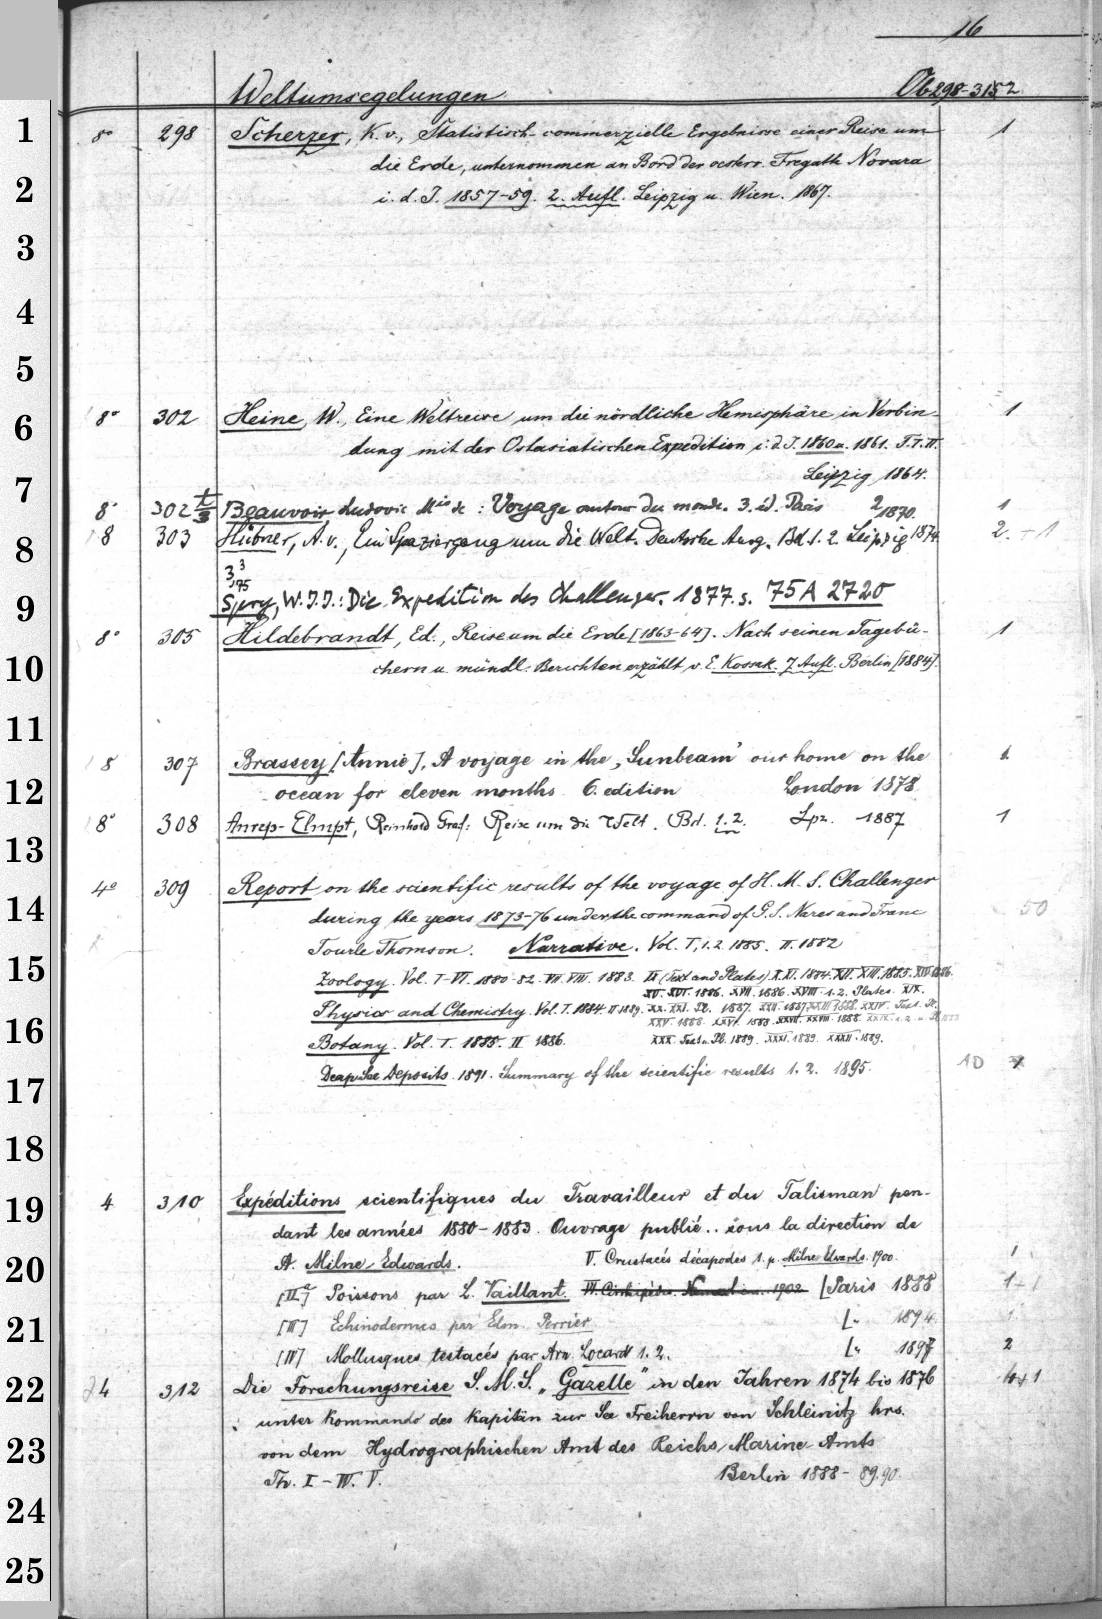 16
Weltumsegelungen Ob 298-3152
8° 298 Scherzer, K. v., Statistisch-commerzielle Ergebnisse einer Reise um 1
die Erde, unternommen an Bord der oesterr. Fregatte Novara
i. d. J. 1857-59. 2. Aufl. Leipzig u. Wien. 1867.
8° 302 Heine, W., Eine Weltreise um die nördliche Hemisphäre in Verbin- 1
dung mit der Ostasiatischen Expedition i. d. J. 1860 u. 1861. T. I. II.
Leipzig 1864.
8° 302 t/3 Beauvoir Ludovic Mis de : Voyage autour du monde. 3. éd. Paris 1870. 1
8 303 Hübner, A. v., Ein Spaziergang um die Welt. Deutsche Ausg. Bd. 1. 2. Leipzig 1874 2. + 1
Spry, W. J. J.: Die Expedition des Challenger. 1877. s. 75 A 2720
8° 305 Hildebrandt, Ed., Reise um die Erde [1863-64]. Nach seinen Tagebü- 1
chern u. mündl. Berichten erzählt v. E. Kossak. 7. Aufl. Berlin [1884].
8 307 Brassey [Annie], A voyage in the „Sunbeam" our home on the 1.
ocean for eleven months 6. edition London 1878
8° 308 Anrep-Elmpt, Reinhold Graf: Reise um die Welt. Bd. 1. 2. Lpz. 1887 1
4° 309 Report on the scientific results of the voyage of H. M. S. Challenger
during the years 1873-76 under the command of G. S. Nares and Franc 50
Tourle Thomson. Narrative. Vol. I, 1. 2 1885. II. 1882
Zoology. Vol. I-VI. 1880-82. VII. VIII. 1883. IX (Text and Plates) X. XI. 1884. XII. XIII. 1885. XIV 1886.
XV. XVI. 1886. XVII. 1886. XVIII 1. 2. Plates. XIX.
Physics and Chemistry. Vol. I. 1884. II 1889. XX. XXI. Pl. 1887. XXII. 1887. XXIII 1888. XXIV. Text. Pl.
XXV. 1888. XXVI. 1888. XXVII. XXVIII. 1888. XXIX 1. 2. u. Pl. 1888
Botany. Vol. I. 1885. II 1886. XXX. Text u. Pl. 1889. XXXI. 1889. XXXII. 1889.
Deap Sea Deposits. 1891. Summary of the scientific results 1. 2. 1895.
4 310 Expéditions scientifiques du Travailleur et du Talisman pen-
dant les années 1880-1883. Ouvrage publié .. sous la direction de
A. Milne-Edwards. V. Crustacés décapodes 1. p. Milne Edwards. 1900. 1
[II] Poissons par L. Vaillant. [Paris 1888 1 + 1
[III] Echinodermes par Edm. Perrier [" 1894 1
[IV] Mollusques testacés par Arn. Locard 1. 2. [" 1897 2
4 312 Die Forschungsreise S. M. S. „Gazelle" in den Jahren 1874 bis 1876 4+1
unter Kommando des Kapitän zur See Freiherrn von Schleinitz hrs.
von dem Hydrographischen Amt des Reichs-Marine-Amts
Th. I-IV. V. Berlin 1888- 89. 90.
1
2
3
4
5
6
7
8
9
10
11
12
13
14
15
16
17
18
19
20
21
22
23
24
25